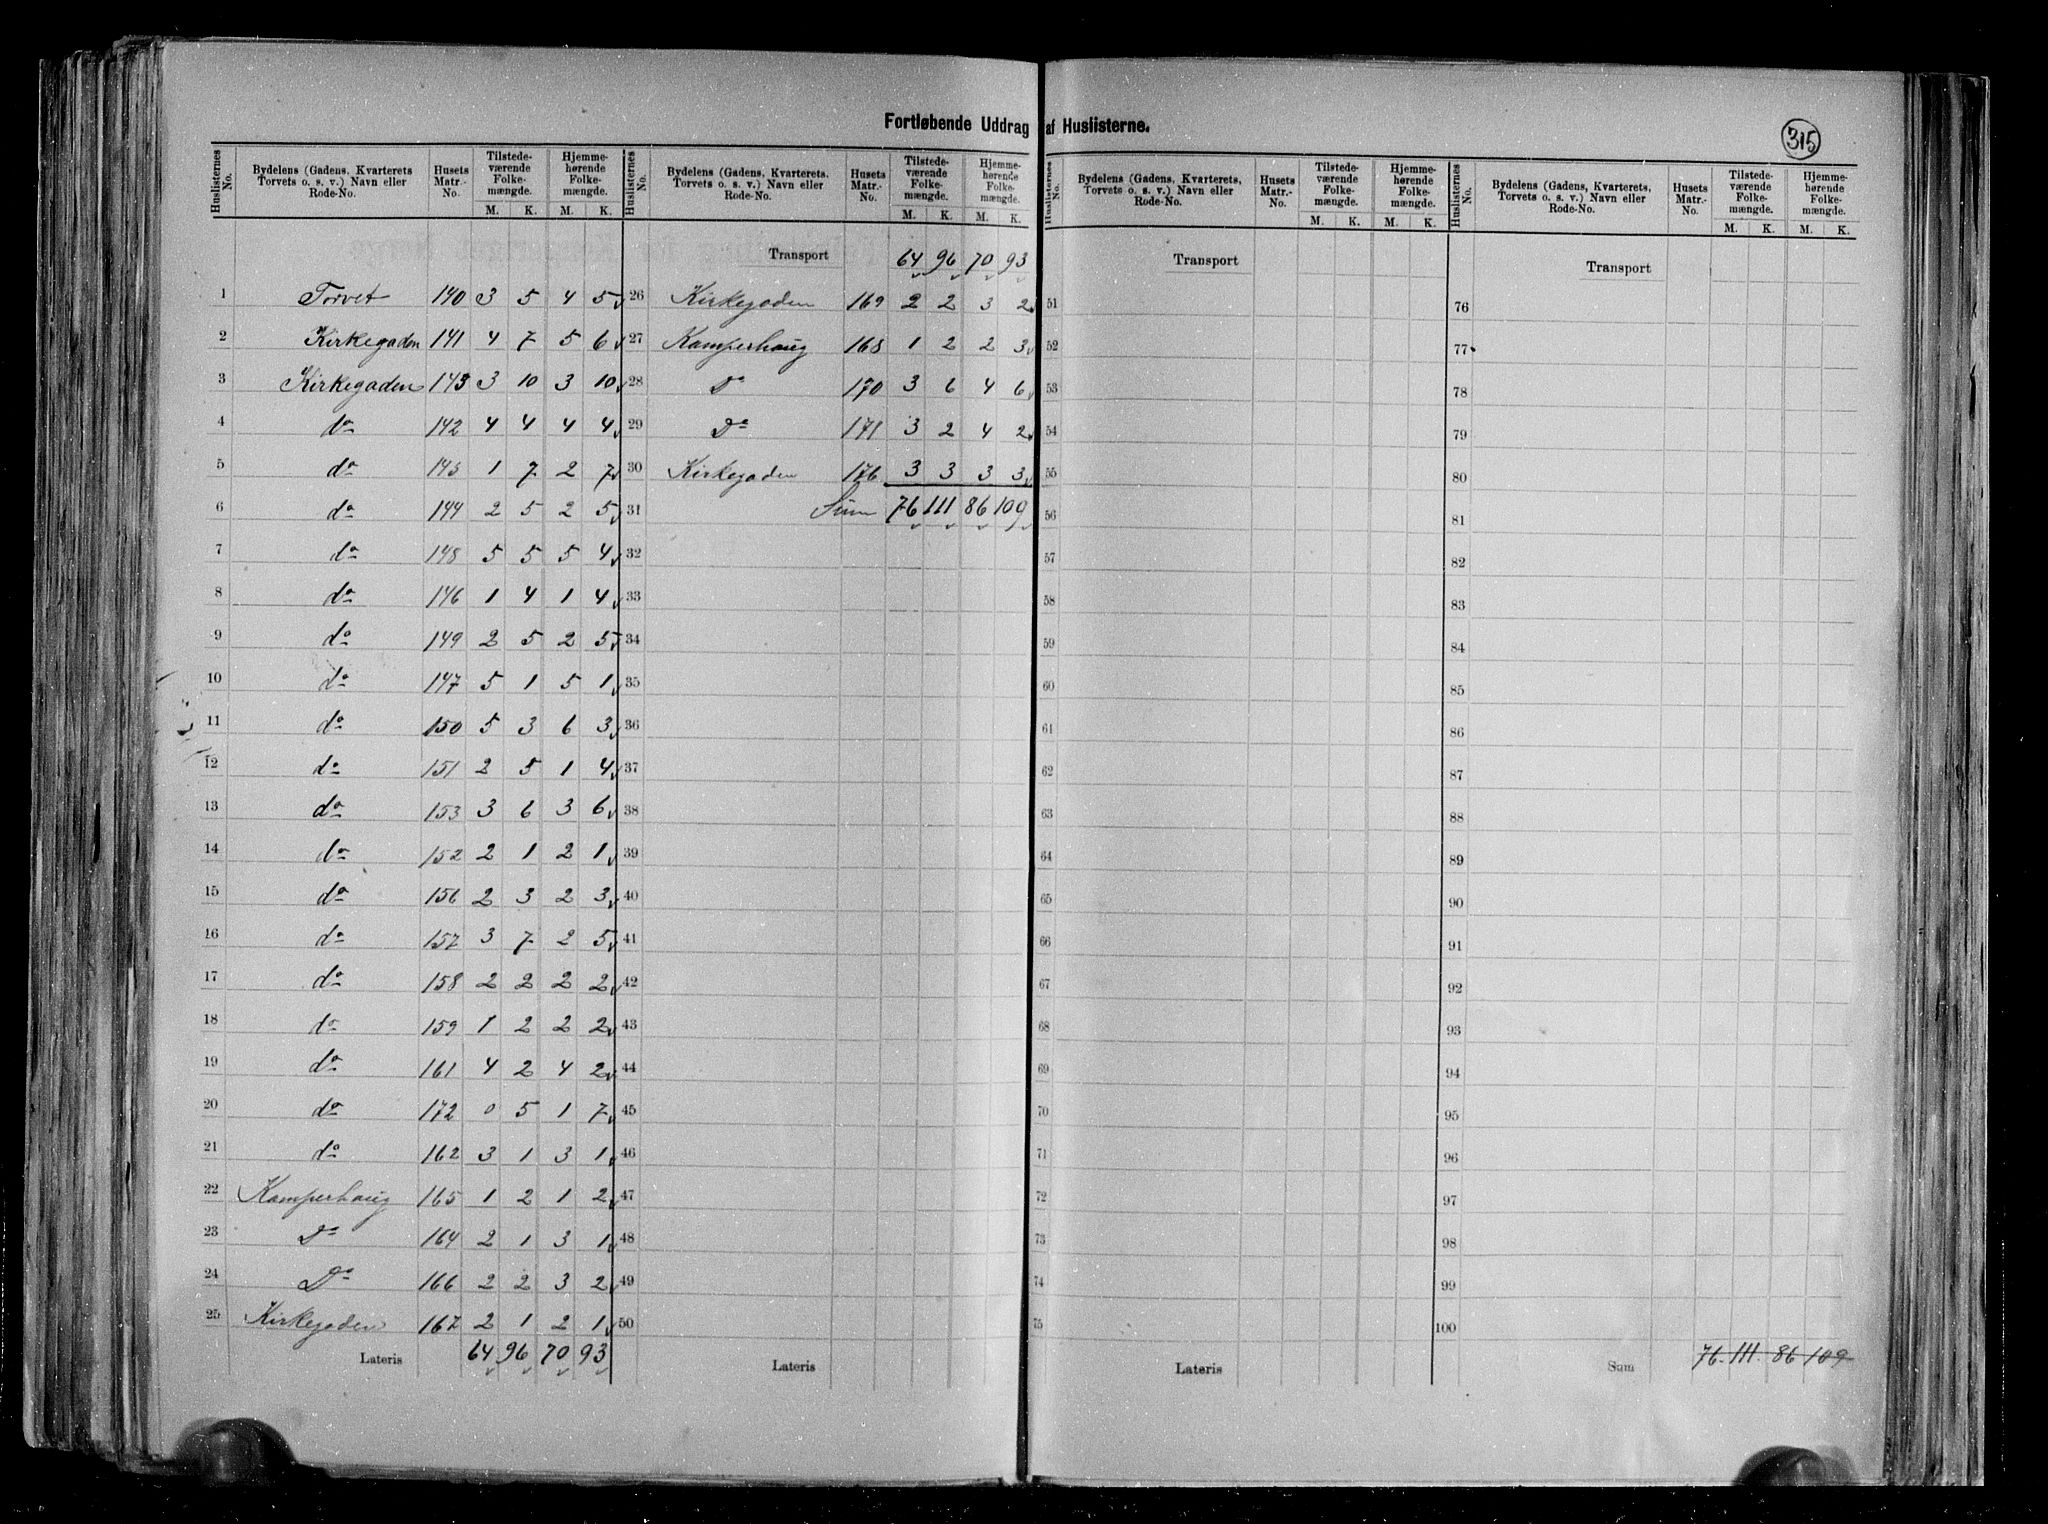 Fortløbende Uddrag af Huslisterne.
315
Huslisternes No. | Bydelens (Gadens, Kvarterets Torvets o. s. v.) Navn eller Rode-No. | Husets Matr.-No. | Tilstedeværende Folkemængde. M. K. | Hjemmehørende Folkemængde. M. K.
1 Torvet 140 3 5 4 5
2 Kirkegaden 141 4 7 5 6
3 Kirkegaden 143 3 10 3 10
4 do 142 4 4 4 4
5 do 145 1 7 2 7
6 do 144 2 5 2 5
7 do 148 5 5 5 4
8 do 146 1 4 1 4
9 do 149 2 5 2 5
10 do 147 5 1 5 1
11 do 150 5 3 6 3
12 do 151 2 5 1 4
13 do 153 3 6 3 6
14 do 152 2 1 2 1
15 do 156 2 3 2 3
16 do 157 3 7 2 5
17 do 158 2 2 2 2
18 do 159 1 2 2 2
19 do 161 4 2 4 2
20 do 172 0 5 1 7
21 do 162 3 1 3 1
22 Kamperhaug 165 1 2 1 2
23 Do 164 2 1 3 1
24 Do 166 2 2 3 2
25 Kirkegaden 167 2 1 2 1
Lateris 64 96 70 93
Huslisternes No. | Bydelens (Gadens, Kvarterets, Torvets o. s. v.) Navn eller Rode-No. | Husets Matr.-No. | Tilstedeværende Folkemængde. M. K. | Hjemmehørende Folkemængde. M. K.
Transport 64 96 70 93
26 Kirkegaden 169 2 2 3 2
27 Kamperhaug 168 1 2 2 3
28 Do 170 3 6 4 6
29 Do 171 3 2 4 2
30 Kirkegaden 176 3 3 3 3
31 Sum 76 111 86 109
32
33
34
35
36
37
38
39
40
41
42
43
44
45
46
47
48
49
50
Lateris
Huslisternes No. | Bydelens (Gadens, Kvarterets, Torvets o. s. v.) Navn eller Rode-No. | Husets Matr.-No. | Tilstedeværende Folkemængde. M. K. | Hjemmehørende Folkemængde. M. K.
Transport
51
52
53
54
55
56
57
58
59
60
61
62
63
64
65
66
67
68
69
70
71
72
73
74
75
Lateris
Huslisternes No. | Bydelens (Gadens, Kvarterets, Torvets o. s. v.) Navn eller Rode-No. | Husets Matr.-No. | Tilstedeværende Folkemængde. M. K. | Hjemmehørende Folkemængde. M. K.
Transport
76
77
78
79
80
81
82
83
84
85
86
87
88
89
90
91
92
93
94
95
96
97
98
99
100
Sum 76 111 86 109